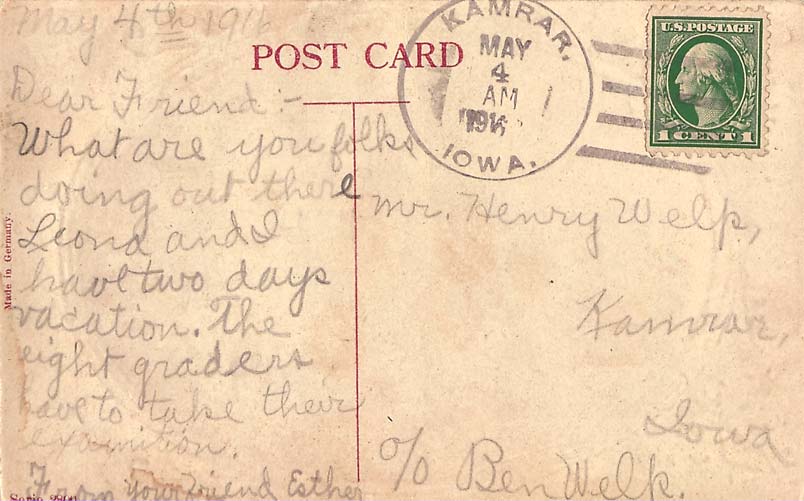 May 4th 191
POST CARD
KAMRAR,
MAY
4
AM
191
IOWA.
U.S. POSTAGE
1 CENT 1
Dear Friend:-
What are you folks
doing out there
Leona and I
have two days
vacation. The
eight graders
have to take their
examintion.
From your friend Esther
Mr. Henry Welp,
Kamrar,
Iowa
c/o Ben Welp.
Made in Germany.
Serie